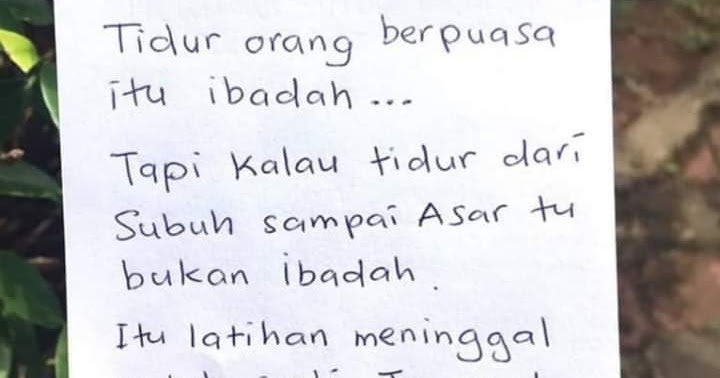 Tidur orang berpuasa
itu ibadah ...
Tapi kalau tidur dari
Subuh sampai Asar tu
bukan ibadah.
Itu latihan meninggal